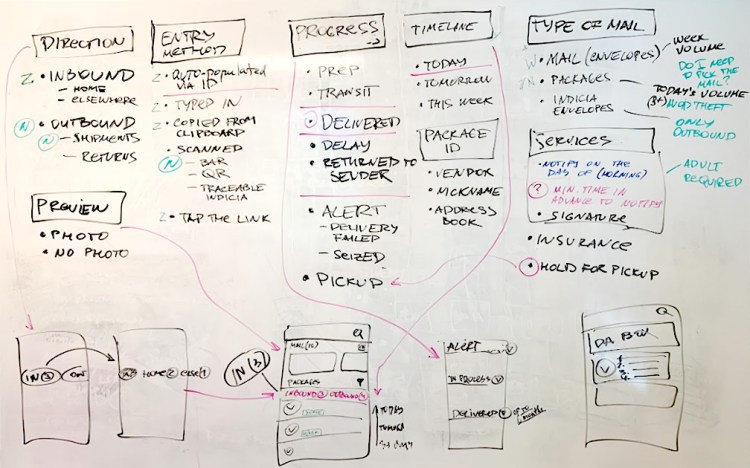 DIRECTION
• INBOUND
- HOME
- ELSEWHERE
• OUTBOUND
- SHIPMENTS
- RETURNS
PREVIEW
• PHOTO
• NO PHOTO
ENTRY
METHOD
• AUTO-POPULATED
VIA ID
• TYPED IN
• COPIED FROM
CLIPBOARD
• SCANNED
- BAR
- QR
- TRACEABLE
INDICIA
• TAP THE LINK
PROGRESS
• PREP
• TRANSIT
• DELIVERED
• DELAY
• RETURNED TO
SENDER
• ALERT
- DELIVERY
FAILED
- SEIZED
• PICKUP
TIMELINE
• TODAY
• TOMORROW
• THIS WEEK
PACKAGE
ID
• VENDOR
• NICKNAME
• ADDRESS
BOOK
TYPE OF MAIL
• MAIL (ENVELOPES)
• PACKAGES
• INDICIA
ENVELOPES
WEEK
VOLUME
DO I NEED
TO PICK THE
MAIL?
TODAY'S VOLUME
THEFT
ONLY
OUTBOUND
SERVICES
• NOTIFY ON THE
DAY OF (MORNING)
? MIN. TIME IN
ADVANCE TO NOTIFY
• SIGNATURE
ADULT
REQUIRED
• INSURANCE
• HOLD FOR PICKUP
IN (3)
HOME (2)
IN (3)
MAIL (10)
PACKAGES
INBOUND OUTBOUND
TODAY
ALERT
IN PROCESS
DELIVERED
UP TO